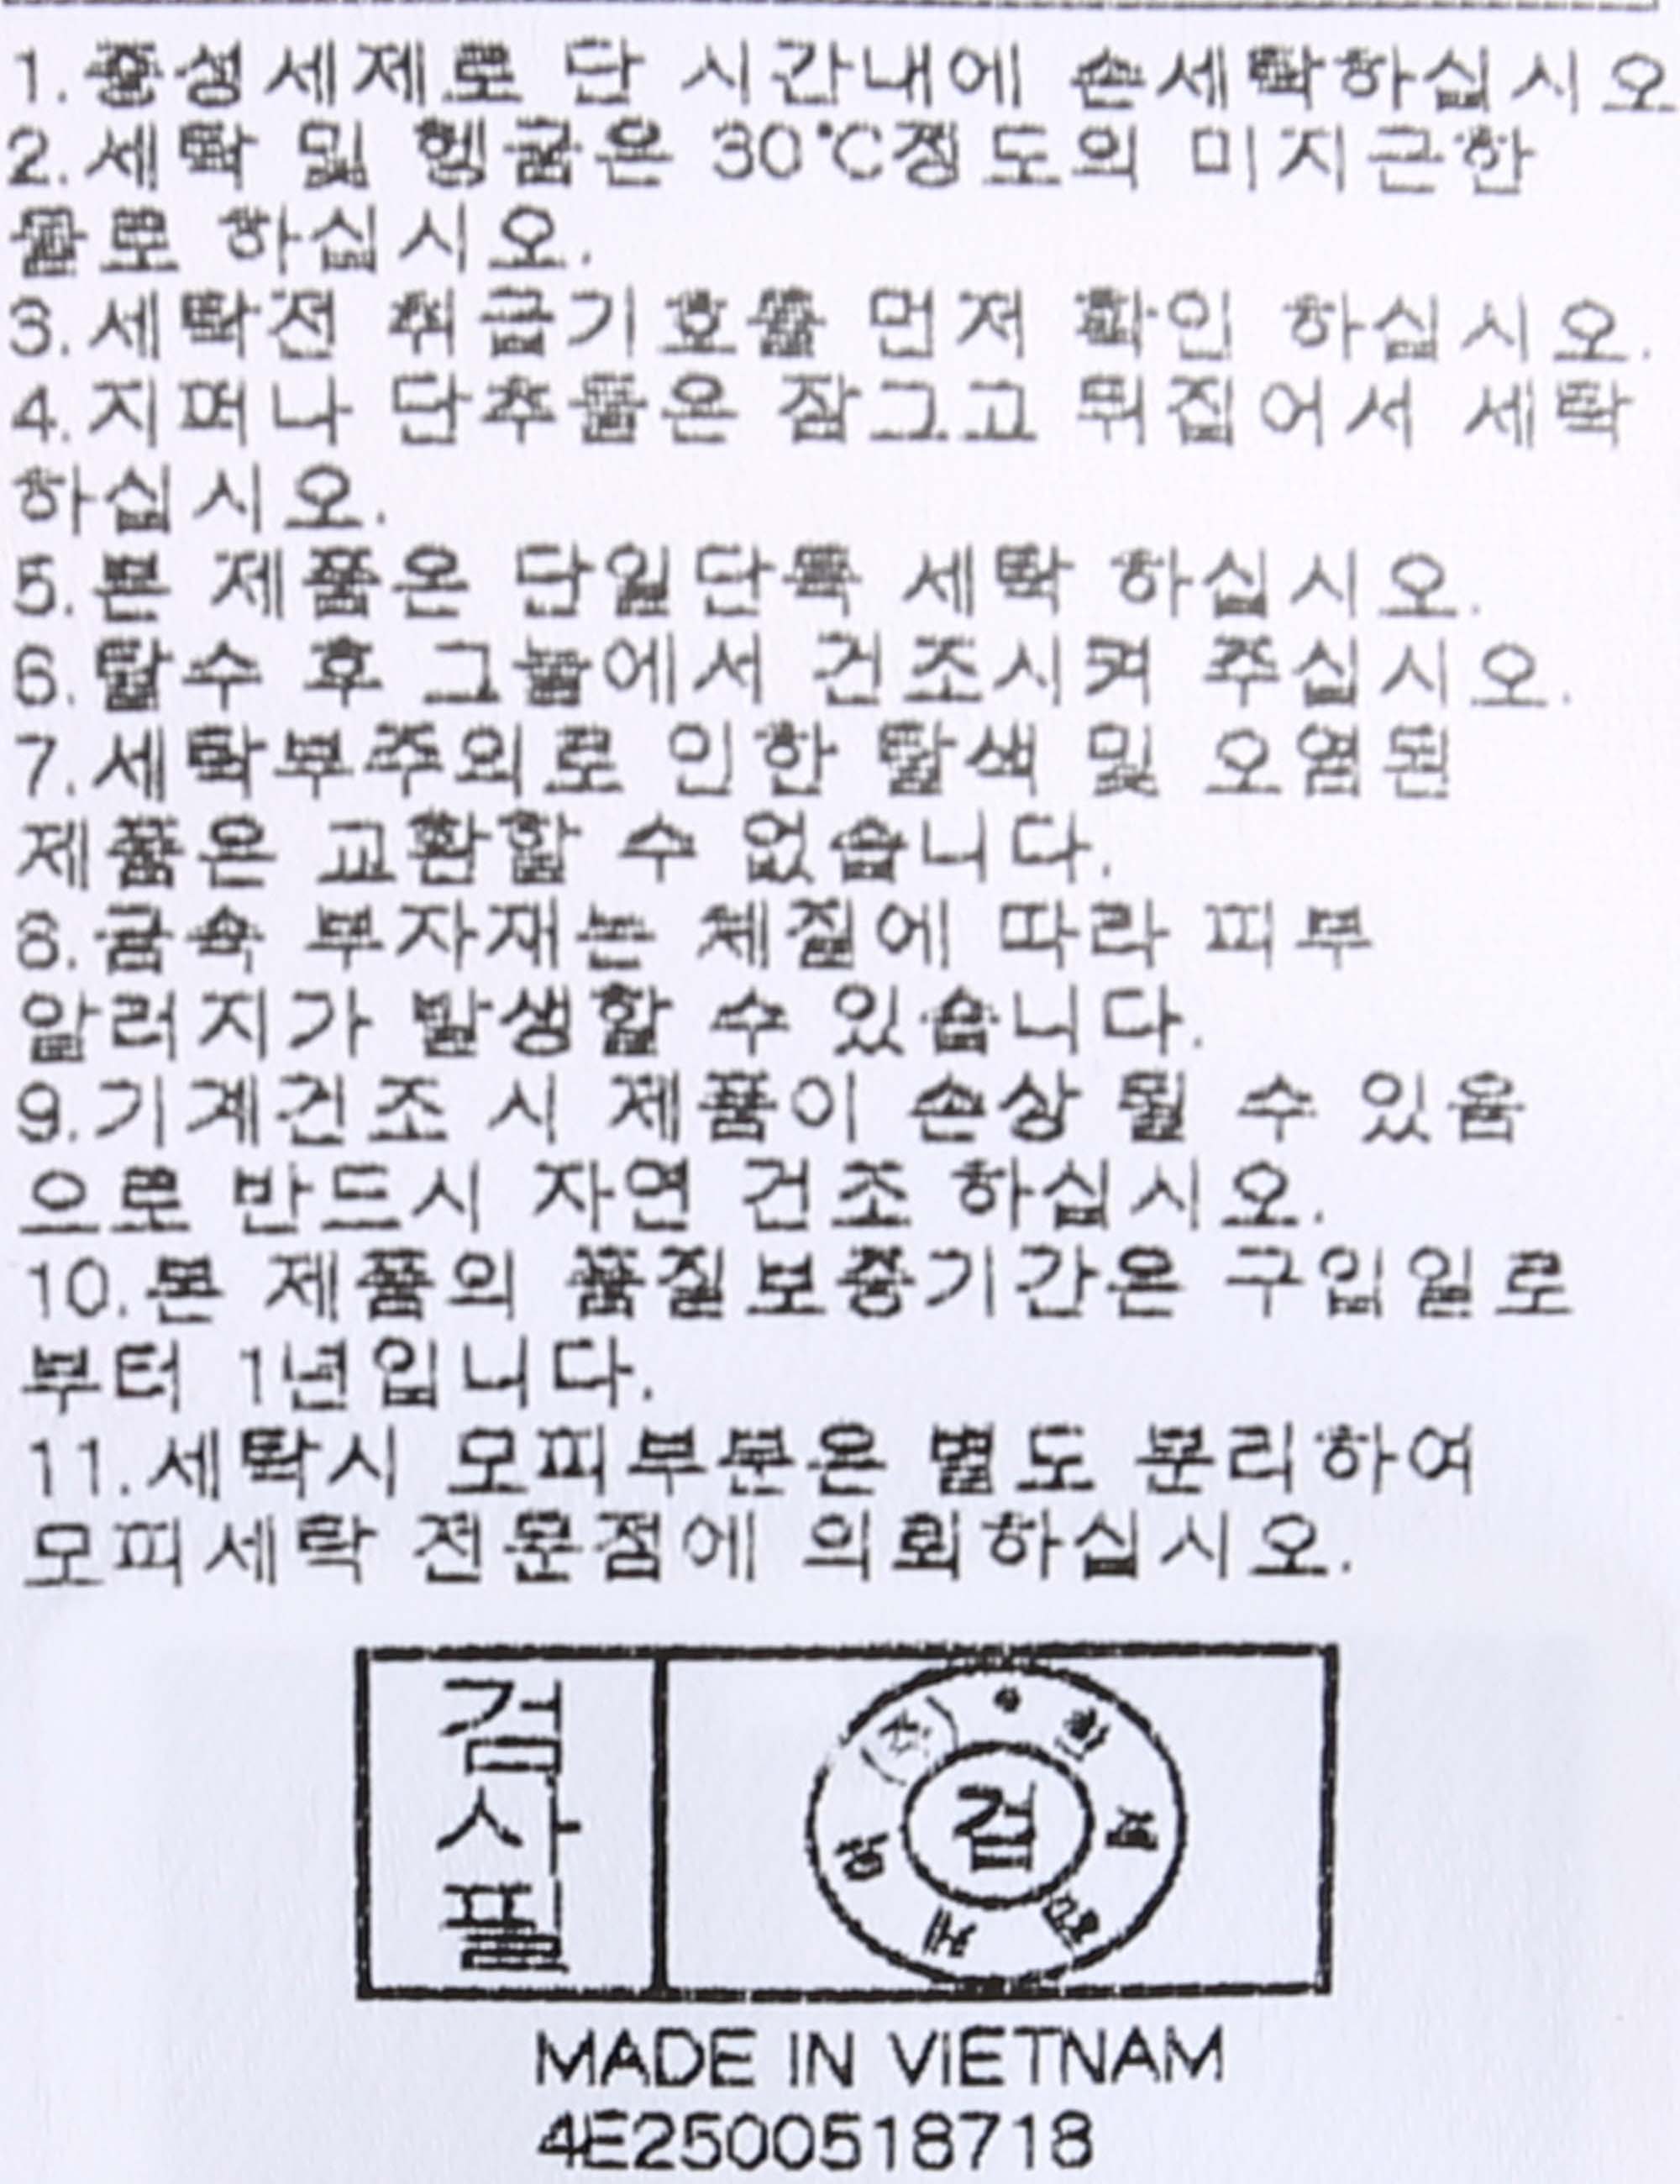 1.중성세제로 단 시간내에 손세탁하십시오
2.세탁 및 헹굼은 30℃정도의 미지근한
물로 하십시오.
3.세탁전 취급기호를 먼저 확인 하십시오.
4.지퍼나 단추들은 잠그고 뒤집어서 세탁
하십시오.
5.본 제품은 단일단독 세탁 하십시오.
6.탈수 후 그늘에서 건조시켜 주십시오.
7.세탁부주의로 인한 탈색 및 오염된
제품은 교환할 수 없습니다.
8.금속 부자재는 체질에 따라 피부
알러지가 발생할 수 있습니다.
9.기계건조 시 제품이 손상 될 수 있음
으로 반드시 자연 건조 하십시오.
10.본 제품의 품질보증기간은 구입일로
부터 1년입니다.
11.세탁시 모피부분은 별도 분리하여
모피세탁 전문점에 의뢰하십시오.
검사필
검
MADE IN VIETNAM
4E2500518718